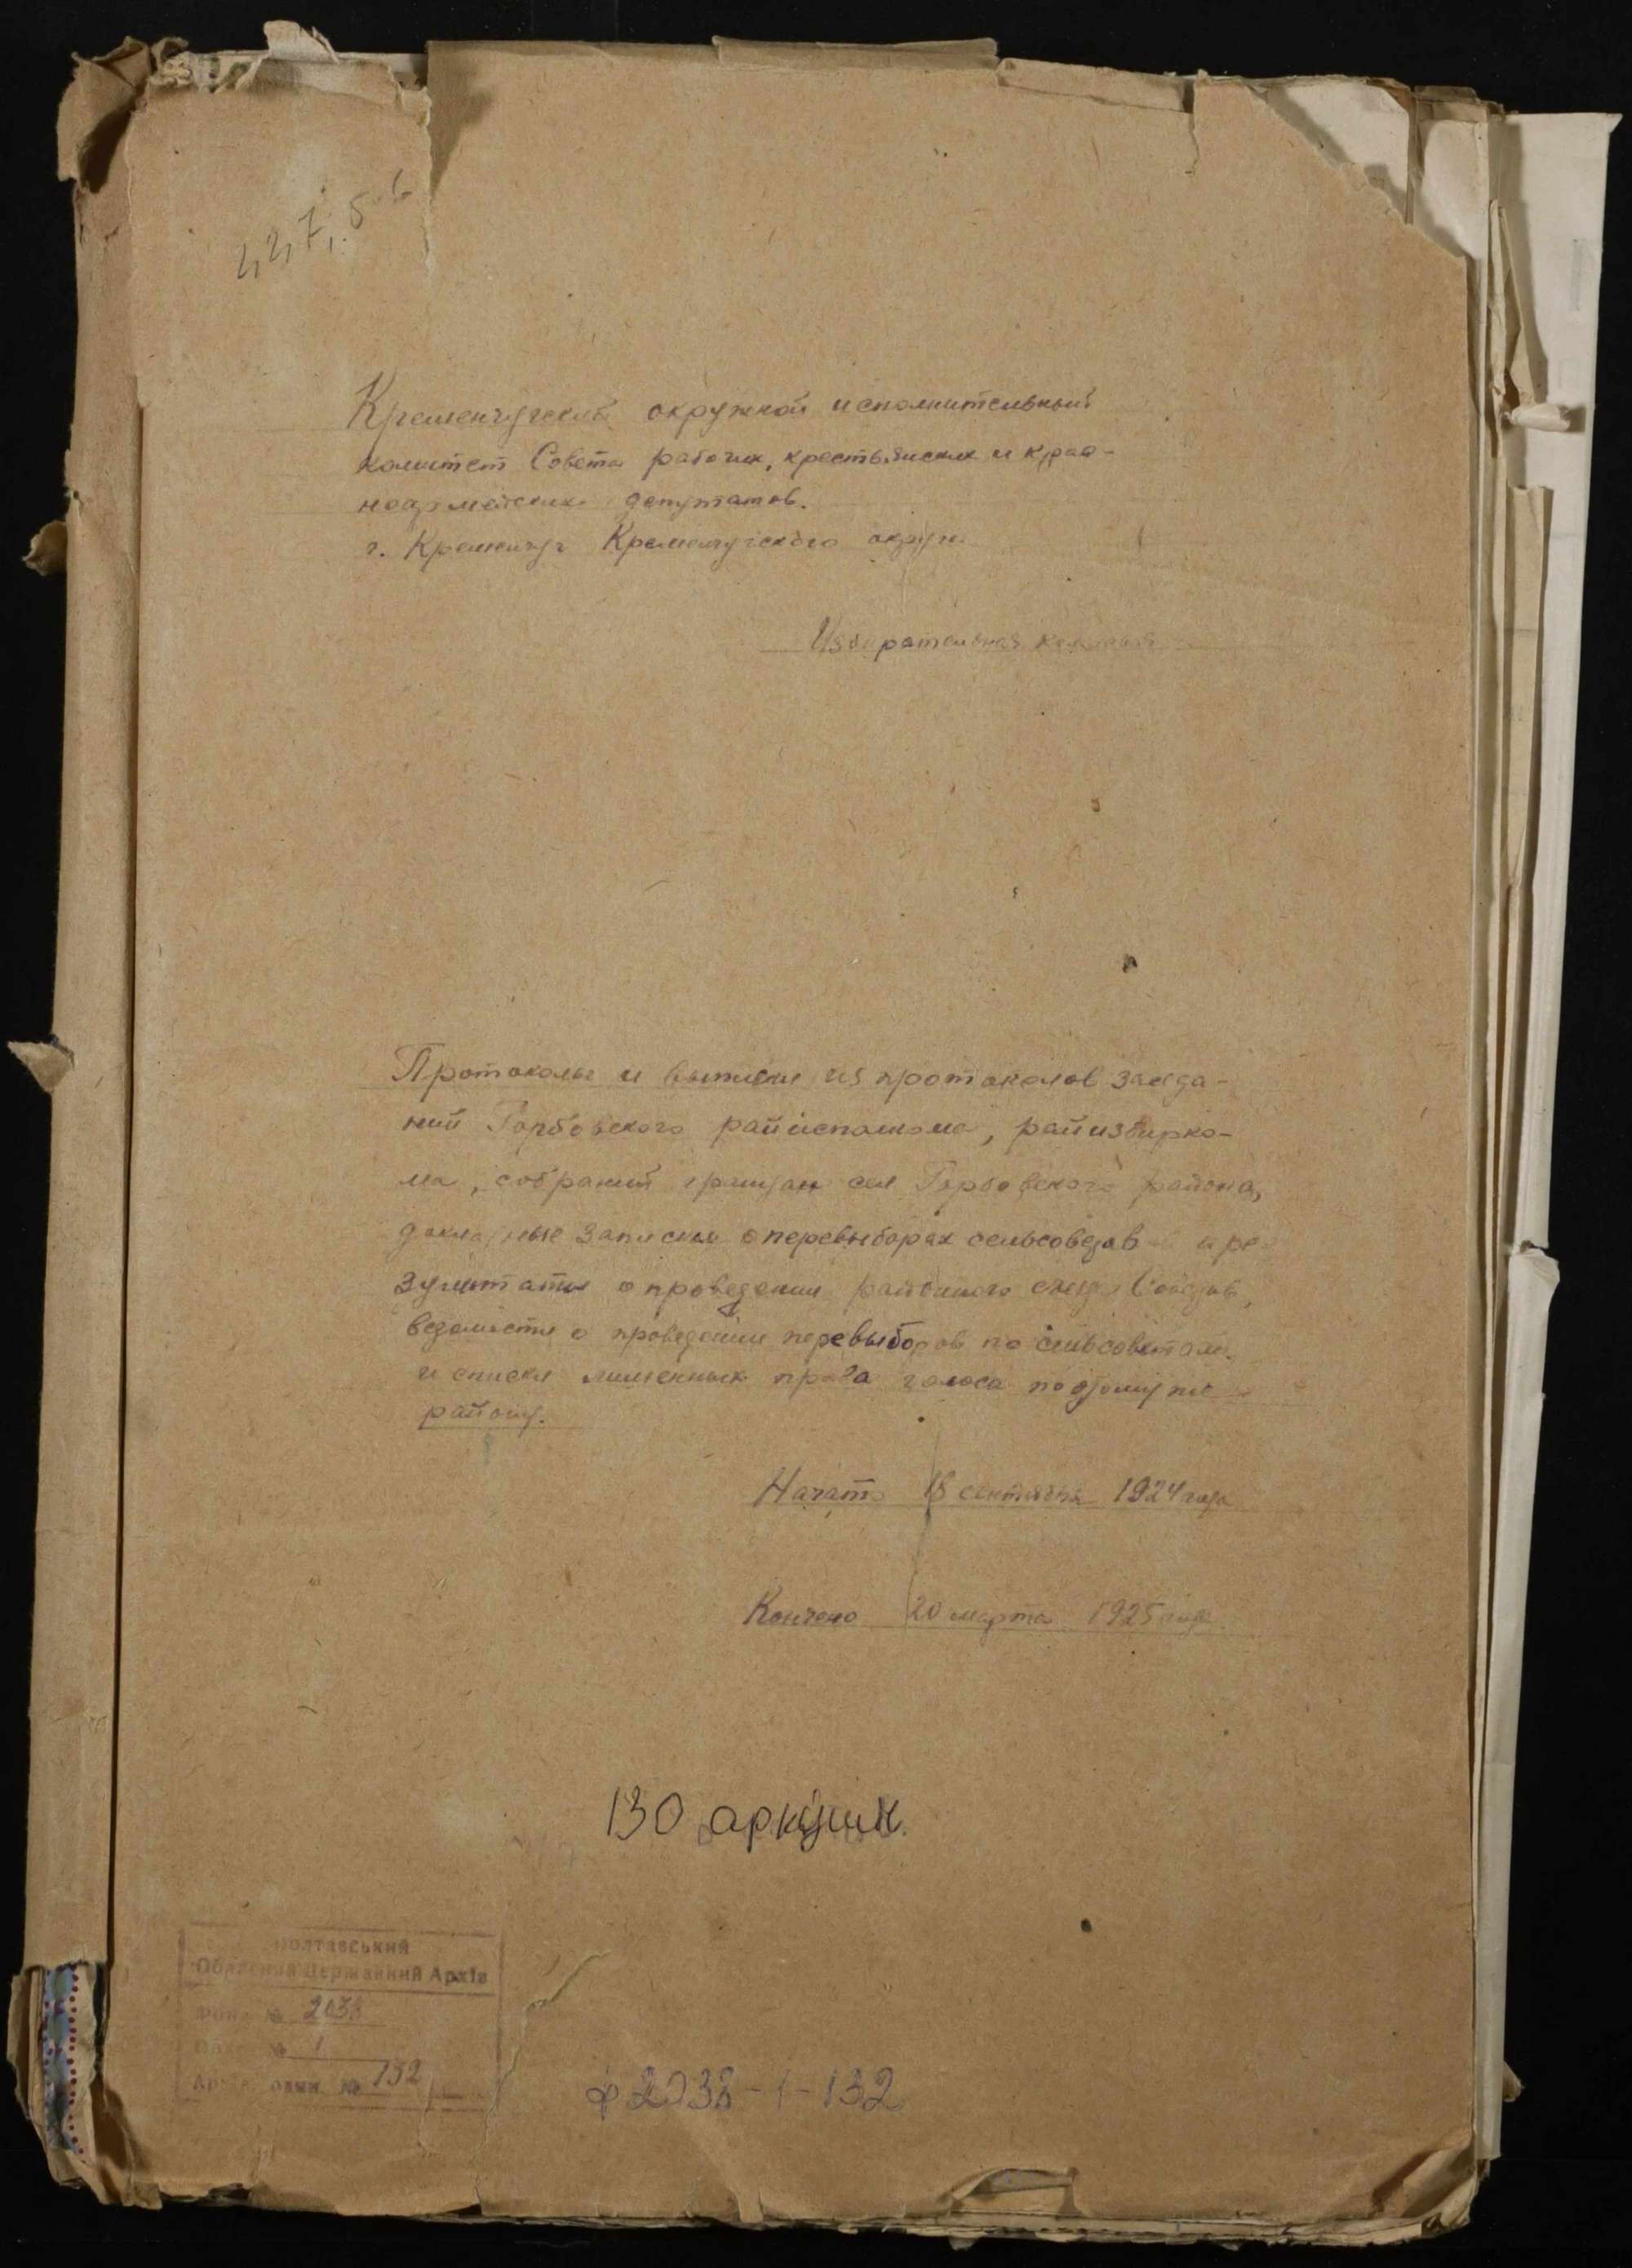 Кременчугский окружной исполнительный
комитет Совета рабочих, крестьянских и крас-
ноармейских депутатов.
г. Кременчуг Кременчугского округа
Избирательная комиссия
Протоколы и выписки из протоколов заседа-
ний райисполкома, райизбирко-
ма, собраний граждан сел района,
докладные записки о перевыборах сельсоветов и ре-
зультаты о проведении районного съезда Советов,
ведомости о проведении перевыборов по сельсоветам
и списки лишенных права голоса по этому же
району.
Начато 18 сентября 1924 года
Кончено 20 марта 1925 года
130 аркуши
Полтавський
Обласний Державний Архів
Фонд № 2038
№ 1
Архів. один. № 132
ф 2038-1-132